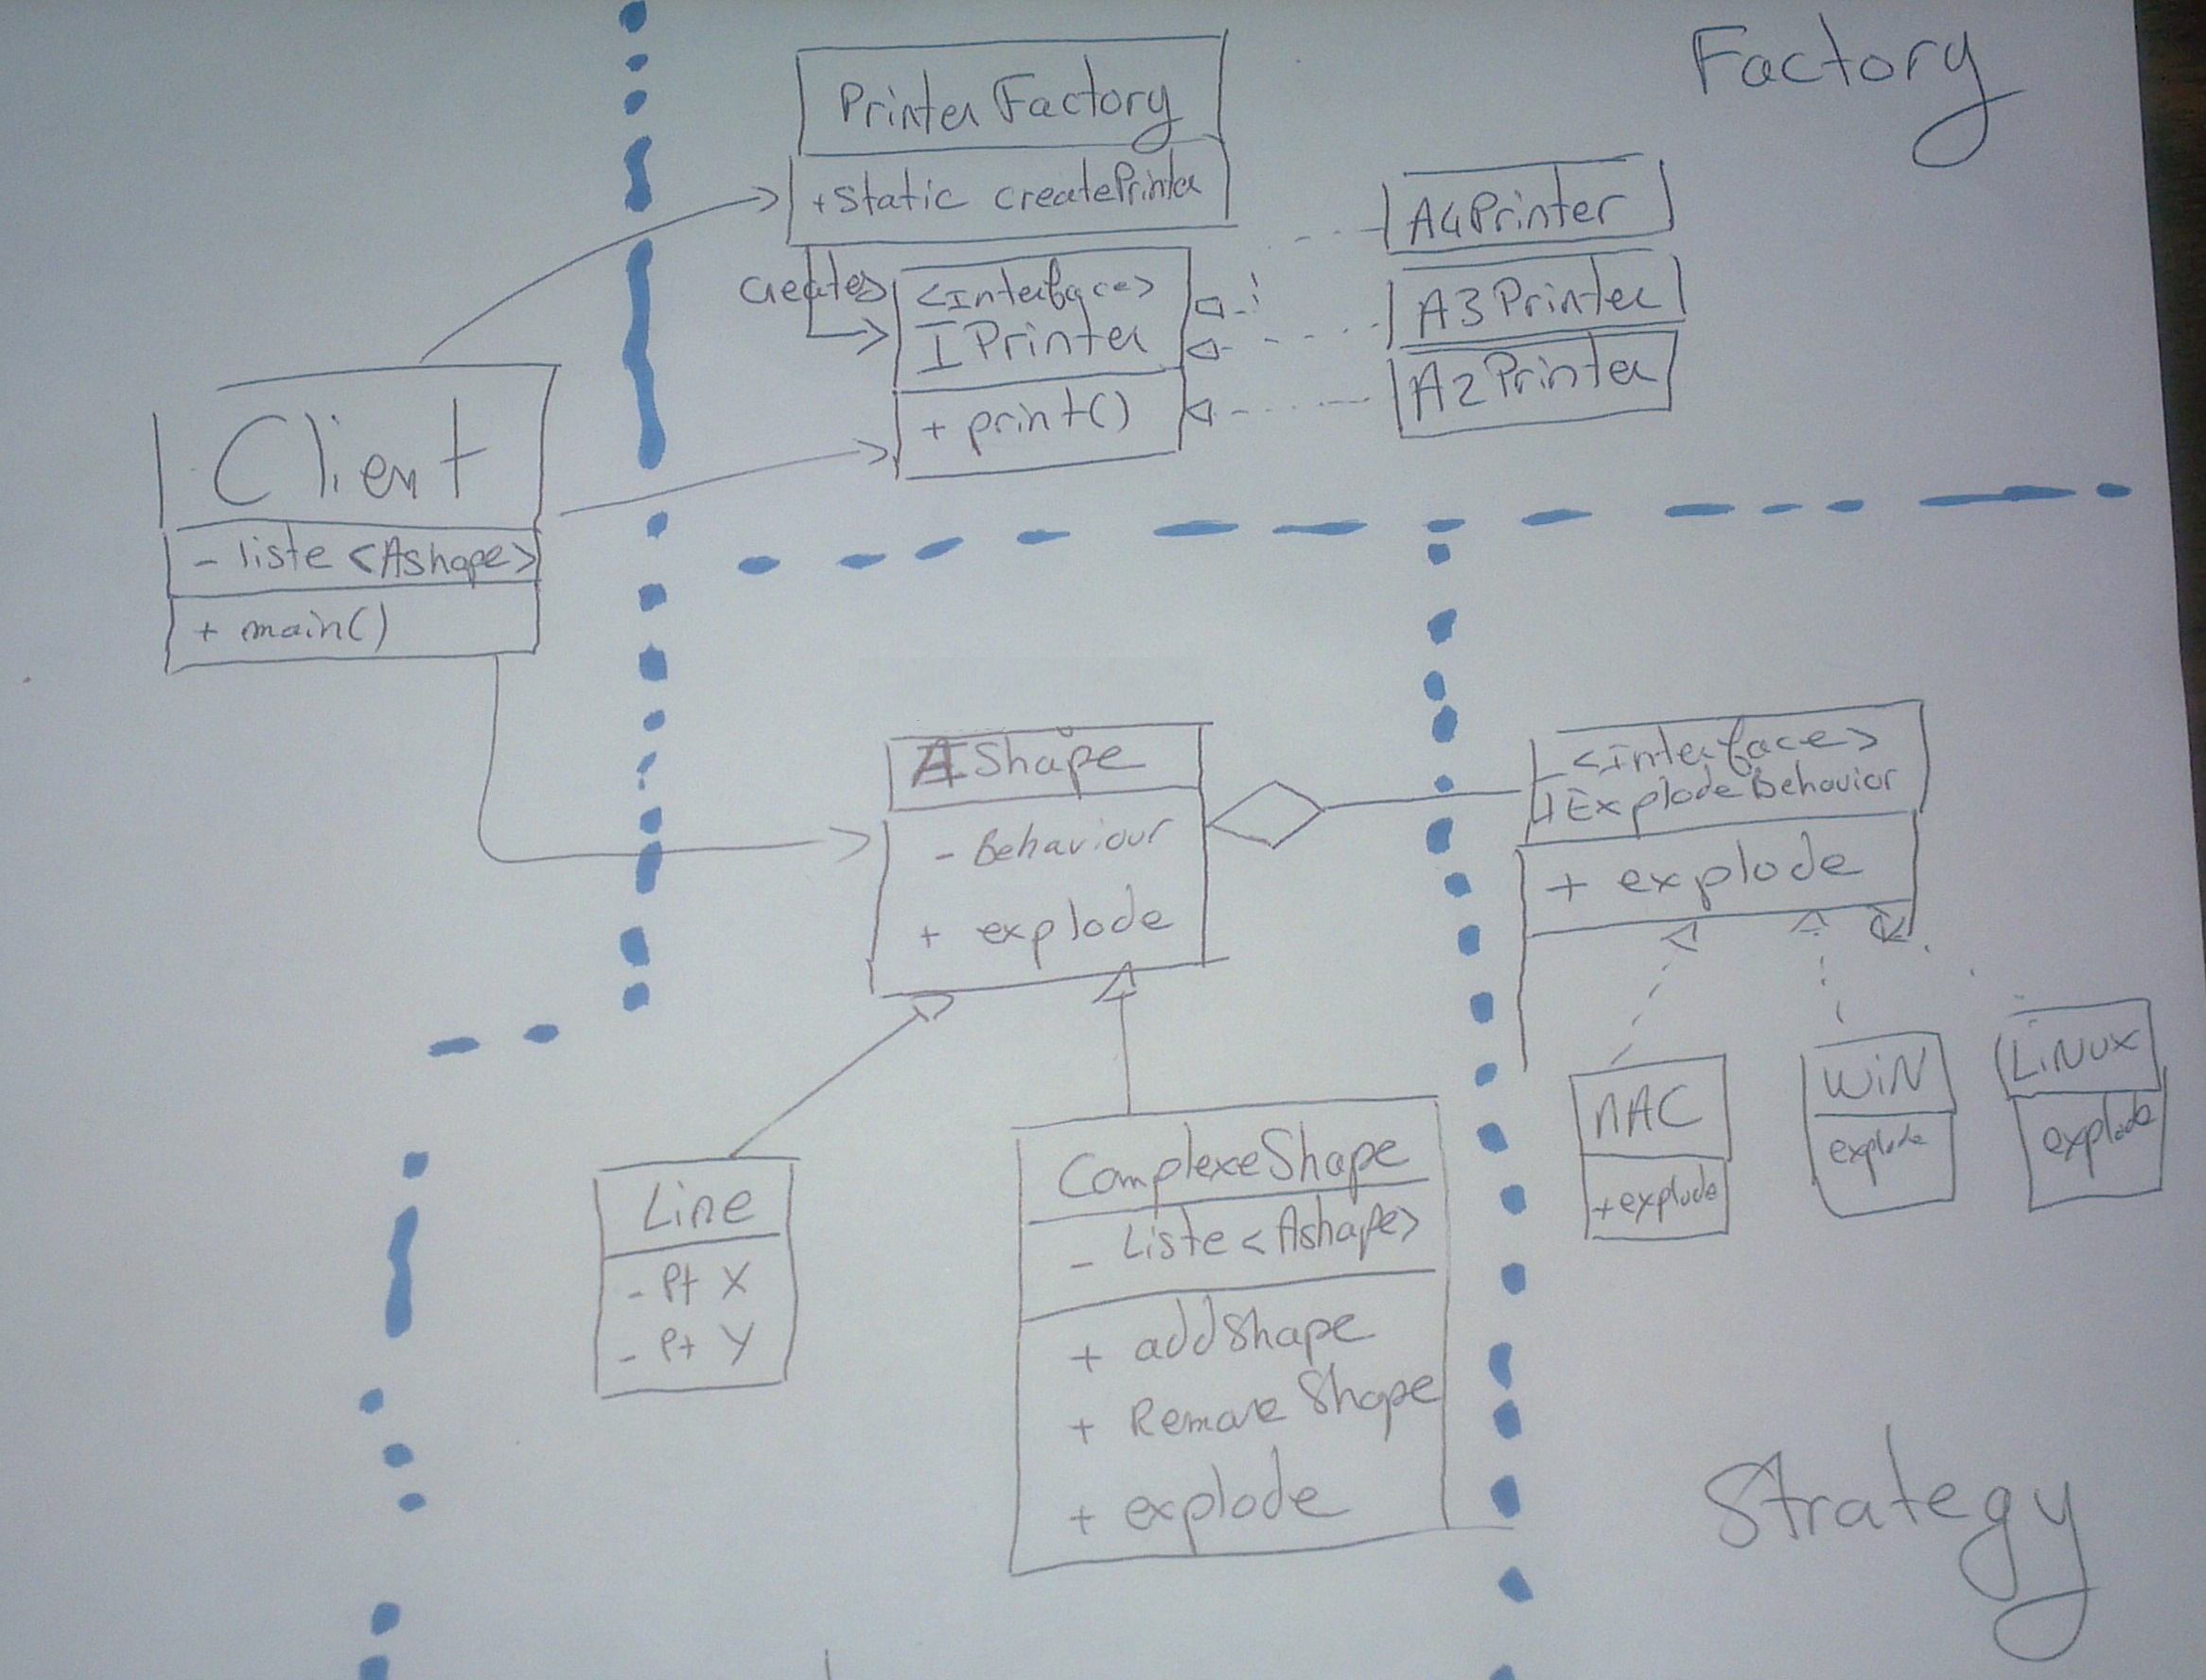 Factory
PrinterFactory
+ static createPrinter
A4Printer
creates
<Interface>
IPrinter
+ print()
A3Printer
A2Printer
Client
- liste <Ashape>
+ main()
AShape
- Behaviour
+ explode
<Interface>
IExplodeBehavior
+ explode
MAC
+ explode
WIN
explode
LiNUX
explode
Line
- Pt X
- Pt Y
ComplexeShape
- Liste <Ashape>
+ addShape
+ Remove Shape
+ explode
Strategy